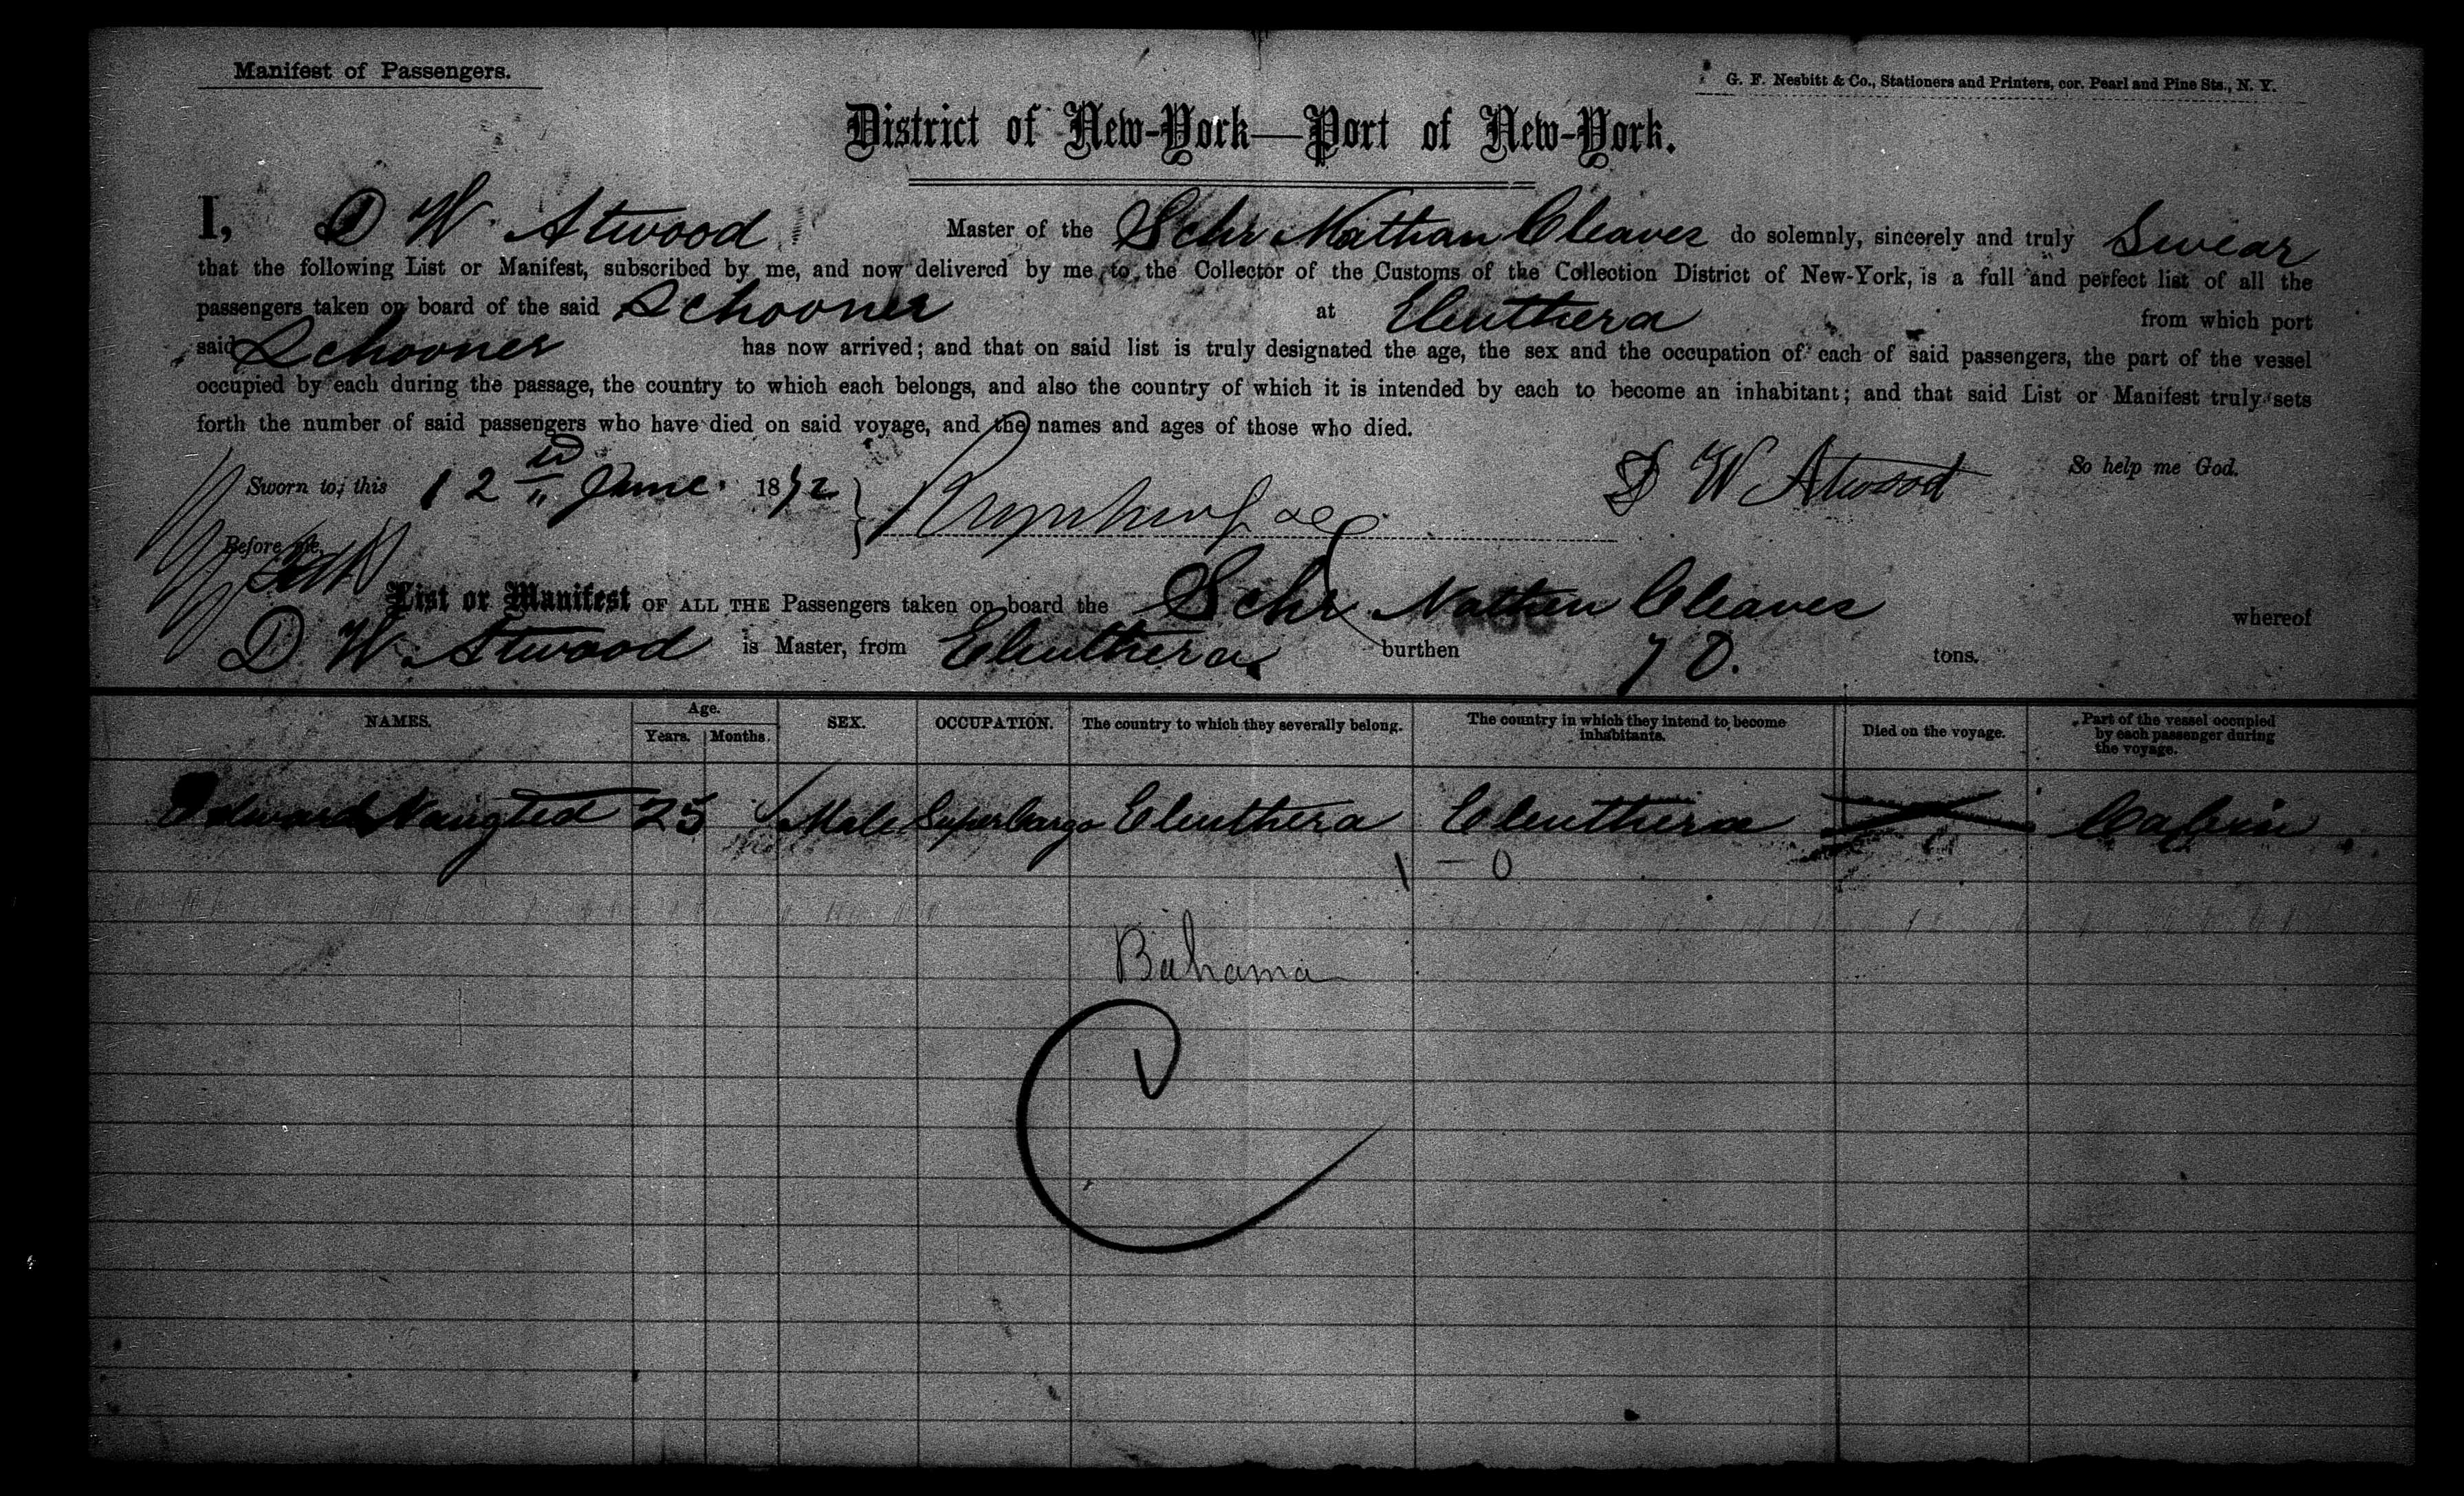 Manifest of Passengers.
G. F. Nesbitt & Co., Stationers and Printers, cor. Pearl and Pine Sts., N. Y.
District of New-York—Port of New-York.
I, D W. Atwood Master of the Schr Nathan Cleaves do solemnly, sincerely and truly Swear
that the following List or Manifest, subscribed by me, and now delivered by me to the Collector of the Customs of the Collection District of New-York, is a full and perfect list of all the
passengers taken on board of the said Schooner at Eleuthera from which port
said Schooner has now arrived; and that on said list is truly designated the age, the sex and the occupation of each of said passengers, the part of the vessel
occupied by each during the passage, the country to which each belongs, and also the country of which it is intended by each to become an inhabitant; and that said List or Manifest truly sets
forth the number of said passengers who have died on said voyage, and the names and ages of those who died.
Sworn to, this 12 June. 1872 D W Atwood So help me God.
Before me,
List or Manifest OF ALL THE Passengers taken on board the Schr Nathan Cleaves whereof
D W. Atwood is Master, from Eleuthera. burthen 70. tons.
NAMES. Age. Years. Months. SEX. OCCUPATION. The country to which they severally belong. The country in which they intend to become inhabitants. Died on the voyage. Part of the vessel occupied by each passenger during the voyage.
Edward 25 Male SuperCargo Eleuthera Eleuthera Cabin
1 — 0
Bahama
C